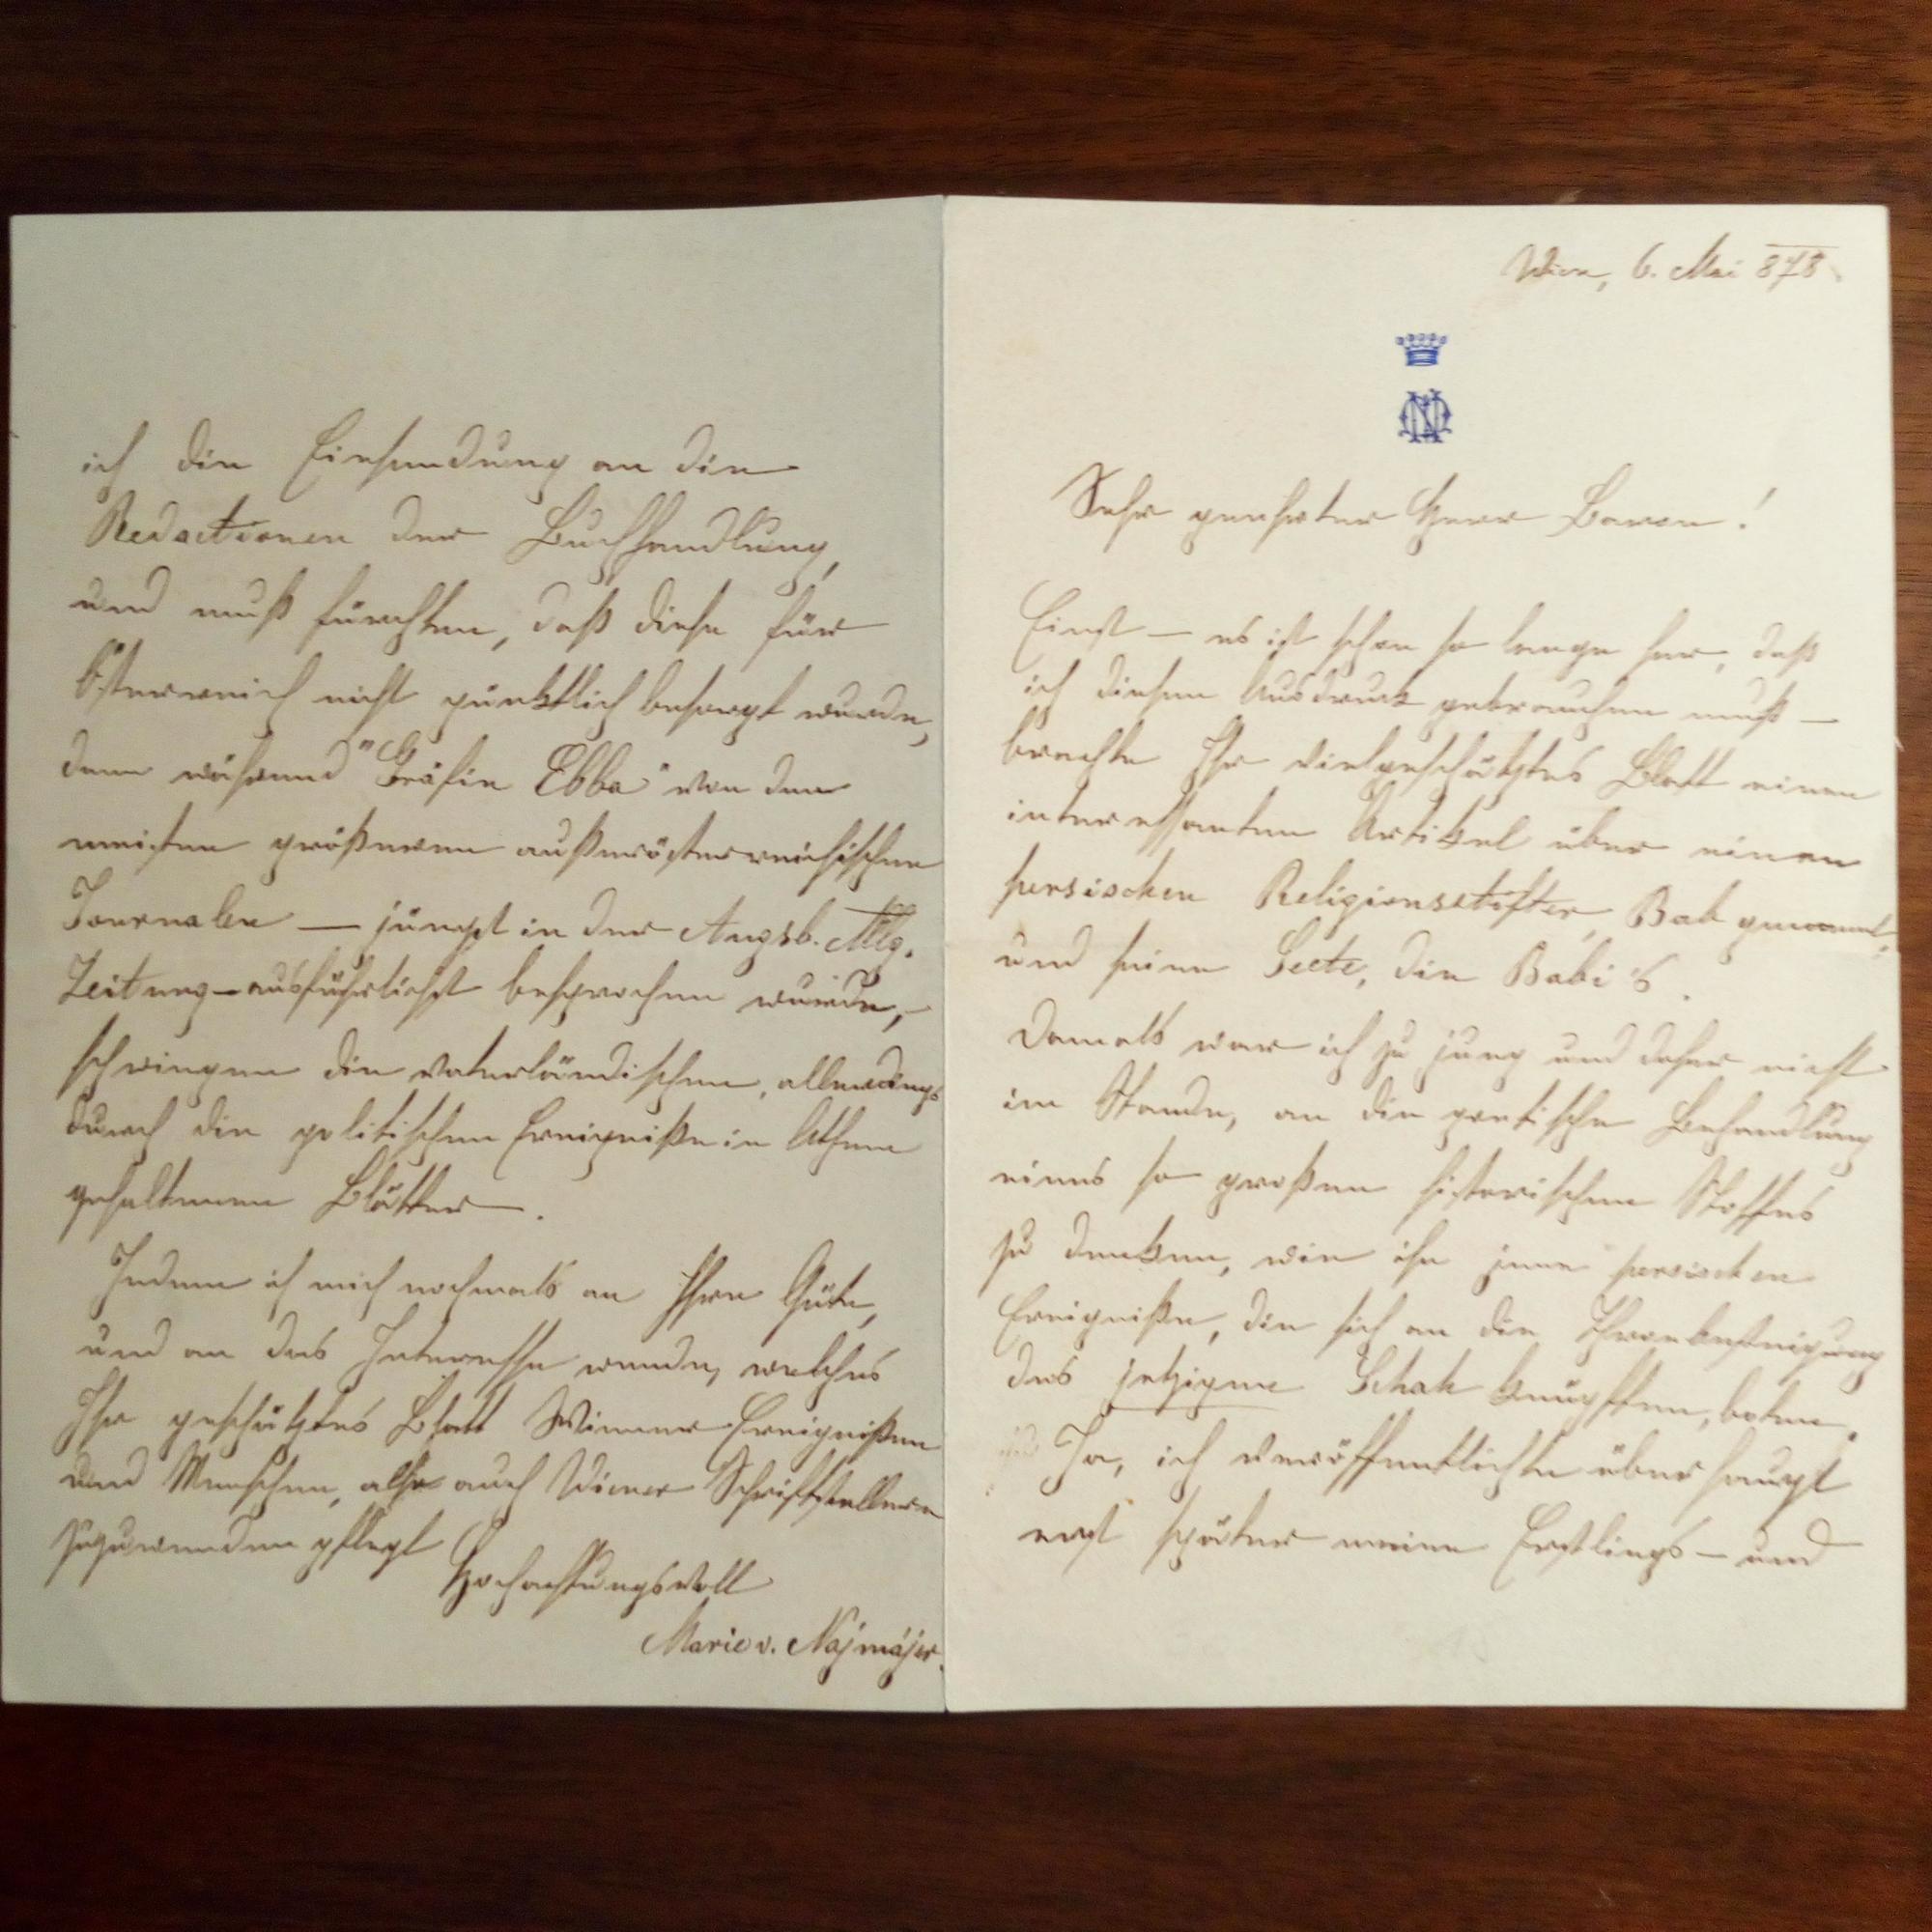 Wien, 6. Mai 878
Sehr geehrter Herr Baron!
Einst – es ist schon so lange her, daß
ich diesen Ausdruck gebrauchen muß –
brachte Ihr vielgeschätztes Blatt einen
interessanten Artikel über einen
persischen Religionsstifter, Bab genannt,
und seine Secte, die Babi's.
Damals war ich zu jung und daher nicht
im Stande, an die poetische Behandlung
eines so großen historischen Stoffes
zu denken, wie ihn jene persischen
Ereigniße, die sich an die Thronbesteigung
des jetzigen Schah knüpften, boten.
Ja, ich veröffentlichte überhaupt
erst später meine Erstlings – und
ich die Einsendung an die
Redactionen der Buchhandlung,
und muß fürchten, daß diese für
Österreich nicht pünktlich besorgt wurde,
denn während "Gräfin Ebba" von den
meisten größeren außerösterreichischen
Journalen – jüngst in der Augsb. Allg.
Zeitung – ausführlichst besprochen wurde, –
schwiegen die vaterländischen, allerdings
durch die politischen Ereigniße in Athem
gehaltenen Blätter.
Indem ich mich nochmals an Ihre Güte,
und an das Interesse wende, welches
Ihr geschätztes Blatt Wiener Ereignißen
und Menschen, also auch Wiener Schriftstellern
zuzuwenden pflegt
Hochachtungsvoll
Marie v. Najmájer.